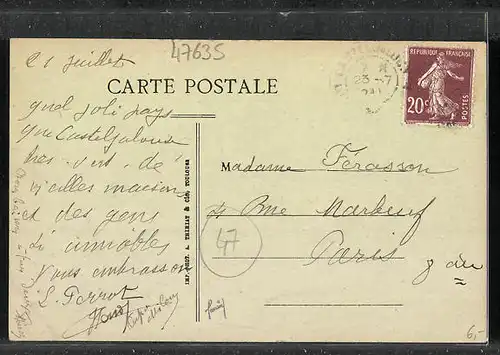 47635
21 juillet
CARTE POSTALE
23 -7
RÉPUBLIQUE FRANÇAISE
20c
POSTES
quel joli pays
que Casteljaloux
très vert de
vieilles maisons
et des gens
si aimables
Vous embrassons
L. Perrot
IMP. PHOT. A. THIRIAT & Cie, TOULOUSE
Madame Ferasson
Rue Marbeuf
Paris
47
6,-